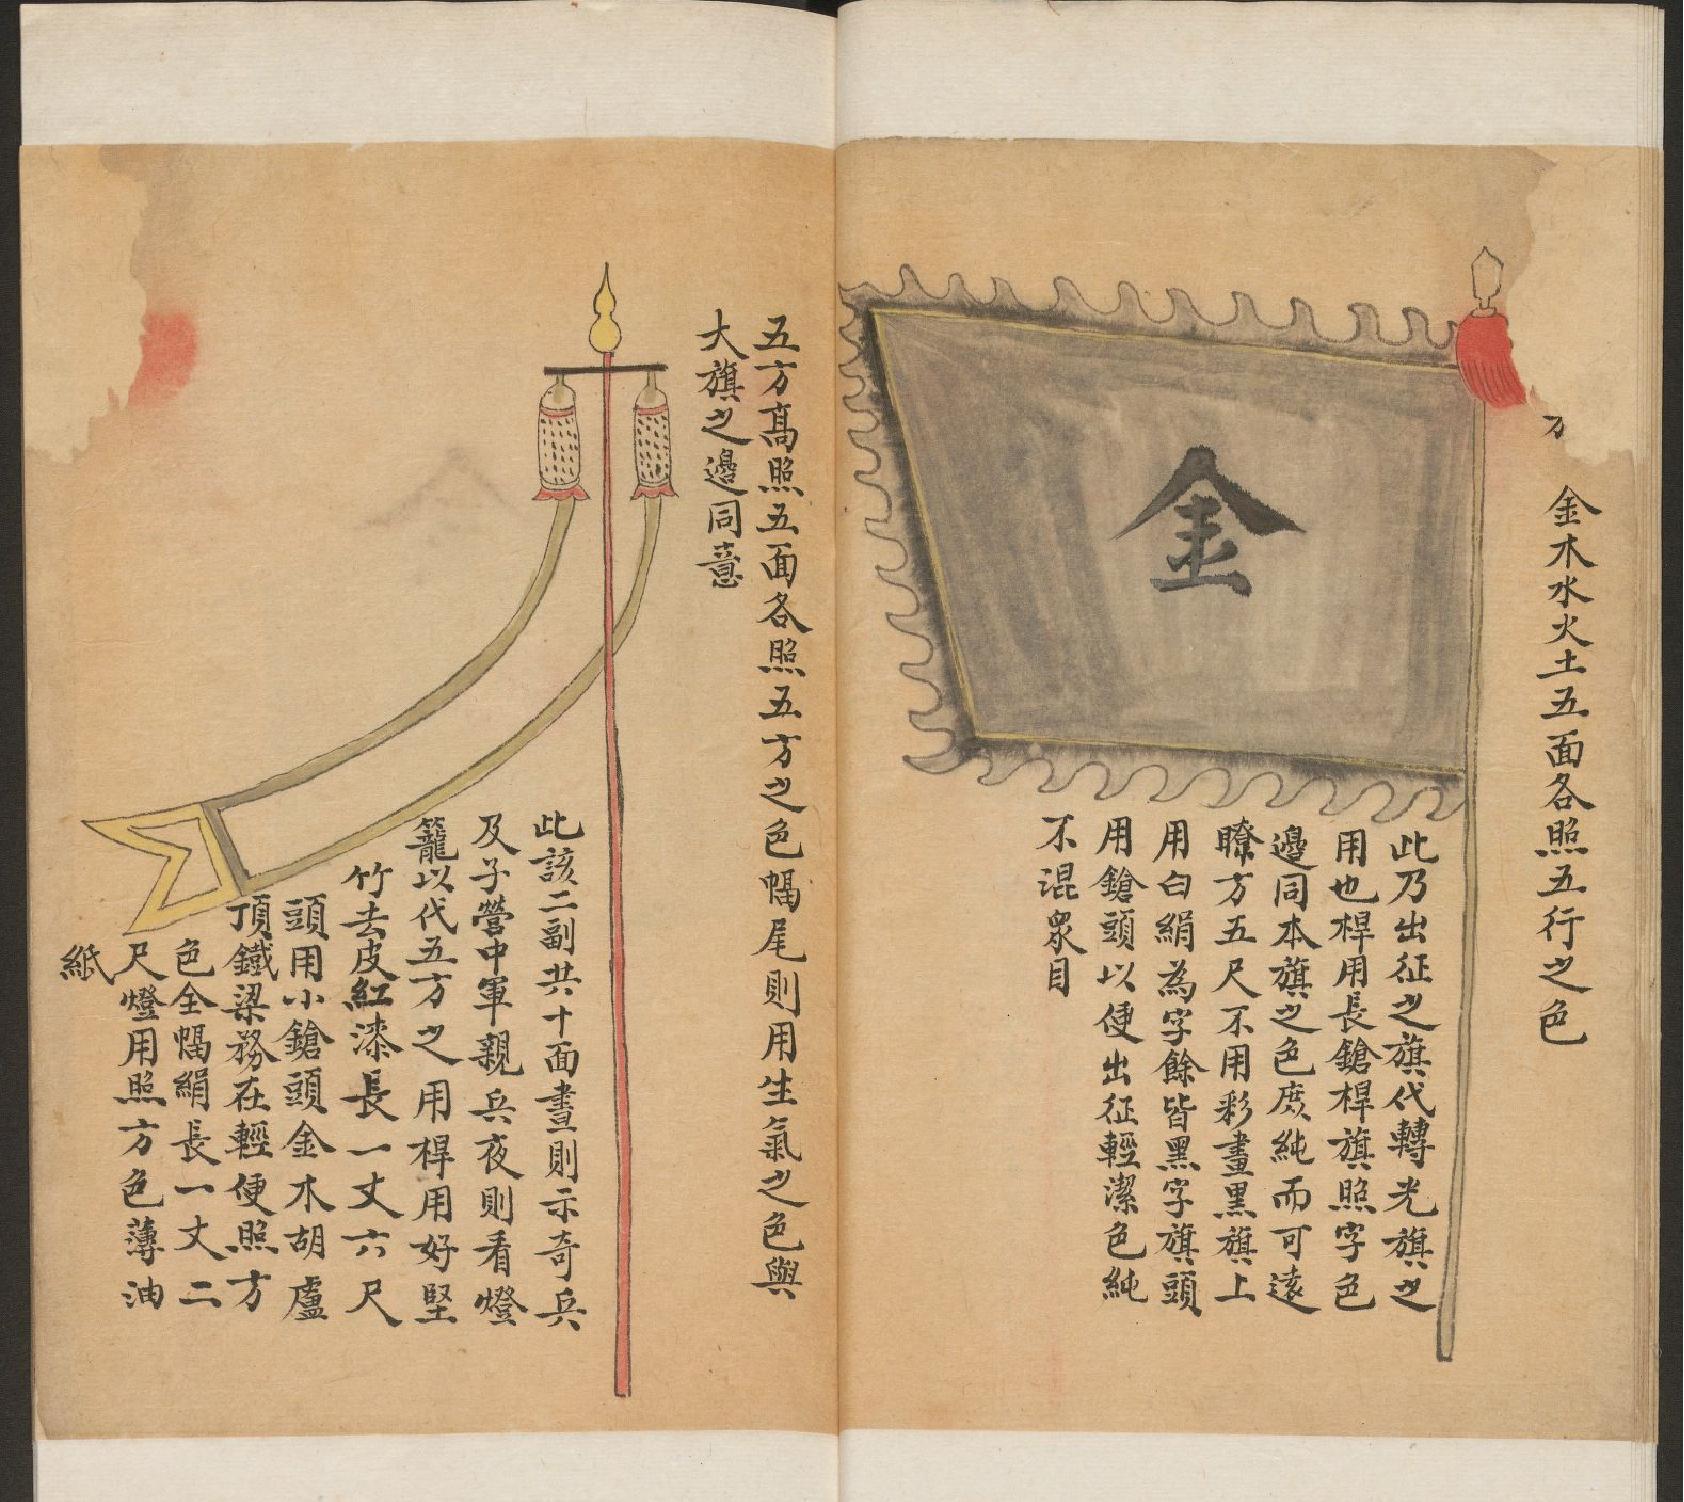 金木水火土五面各照五行之色
金
此乃出征之旗代轉光旗之
用也桿用長鎗桿旗照字色
邊同本旗之色庶純而可遠
瞭方五尺不用彩畫黑旗上
用白絹為字餘皆黑字旗頭
用鎗頭以便出征輕潔色純
不混眾目
五方高照五面各照五方之色幅尾則用生氣之色與
大旗之邊同意
此該二副共十面晝則示奇兵
及子營中軍親兵夜則看燈
籠以代五方之用桿用好堅
竹去皮紅漆長一丈六尺
頭用小鎗頭金木胡盧
頂鐵梁務在輕便照方
色全幅絹長一丈二
尺燈用照方色薄油
紙